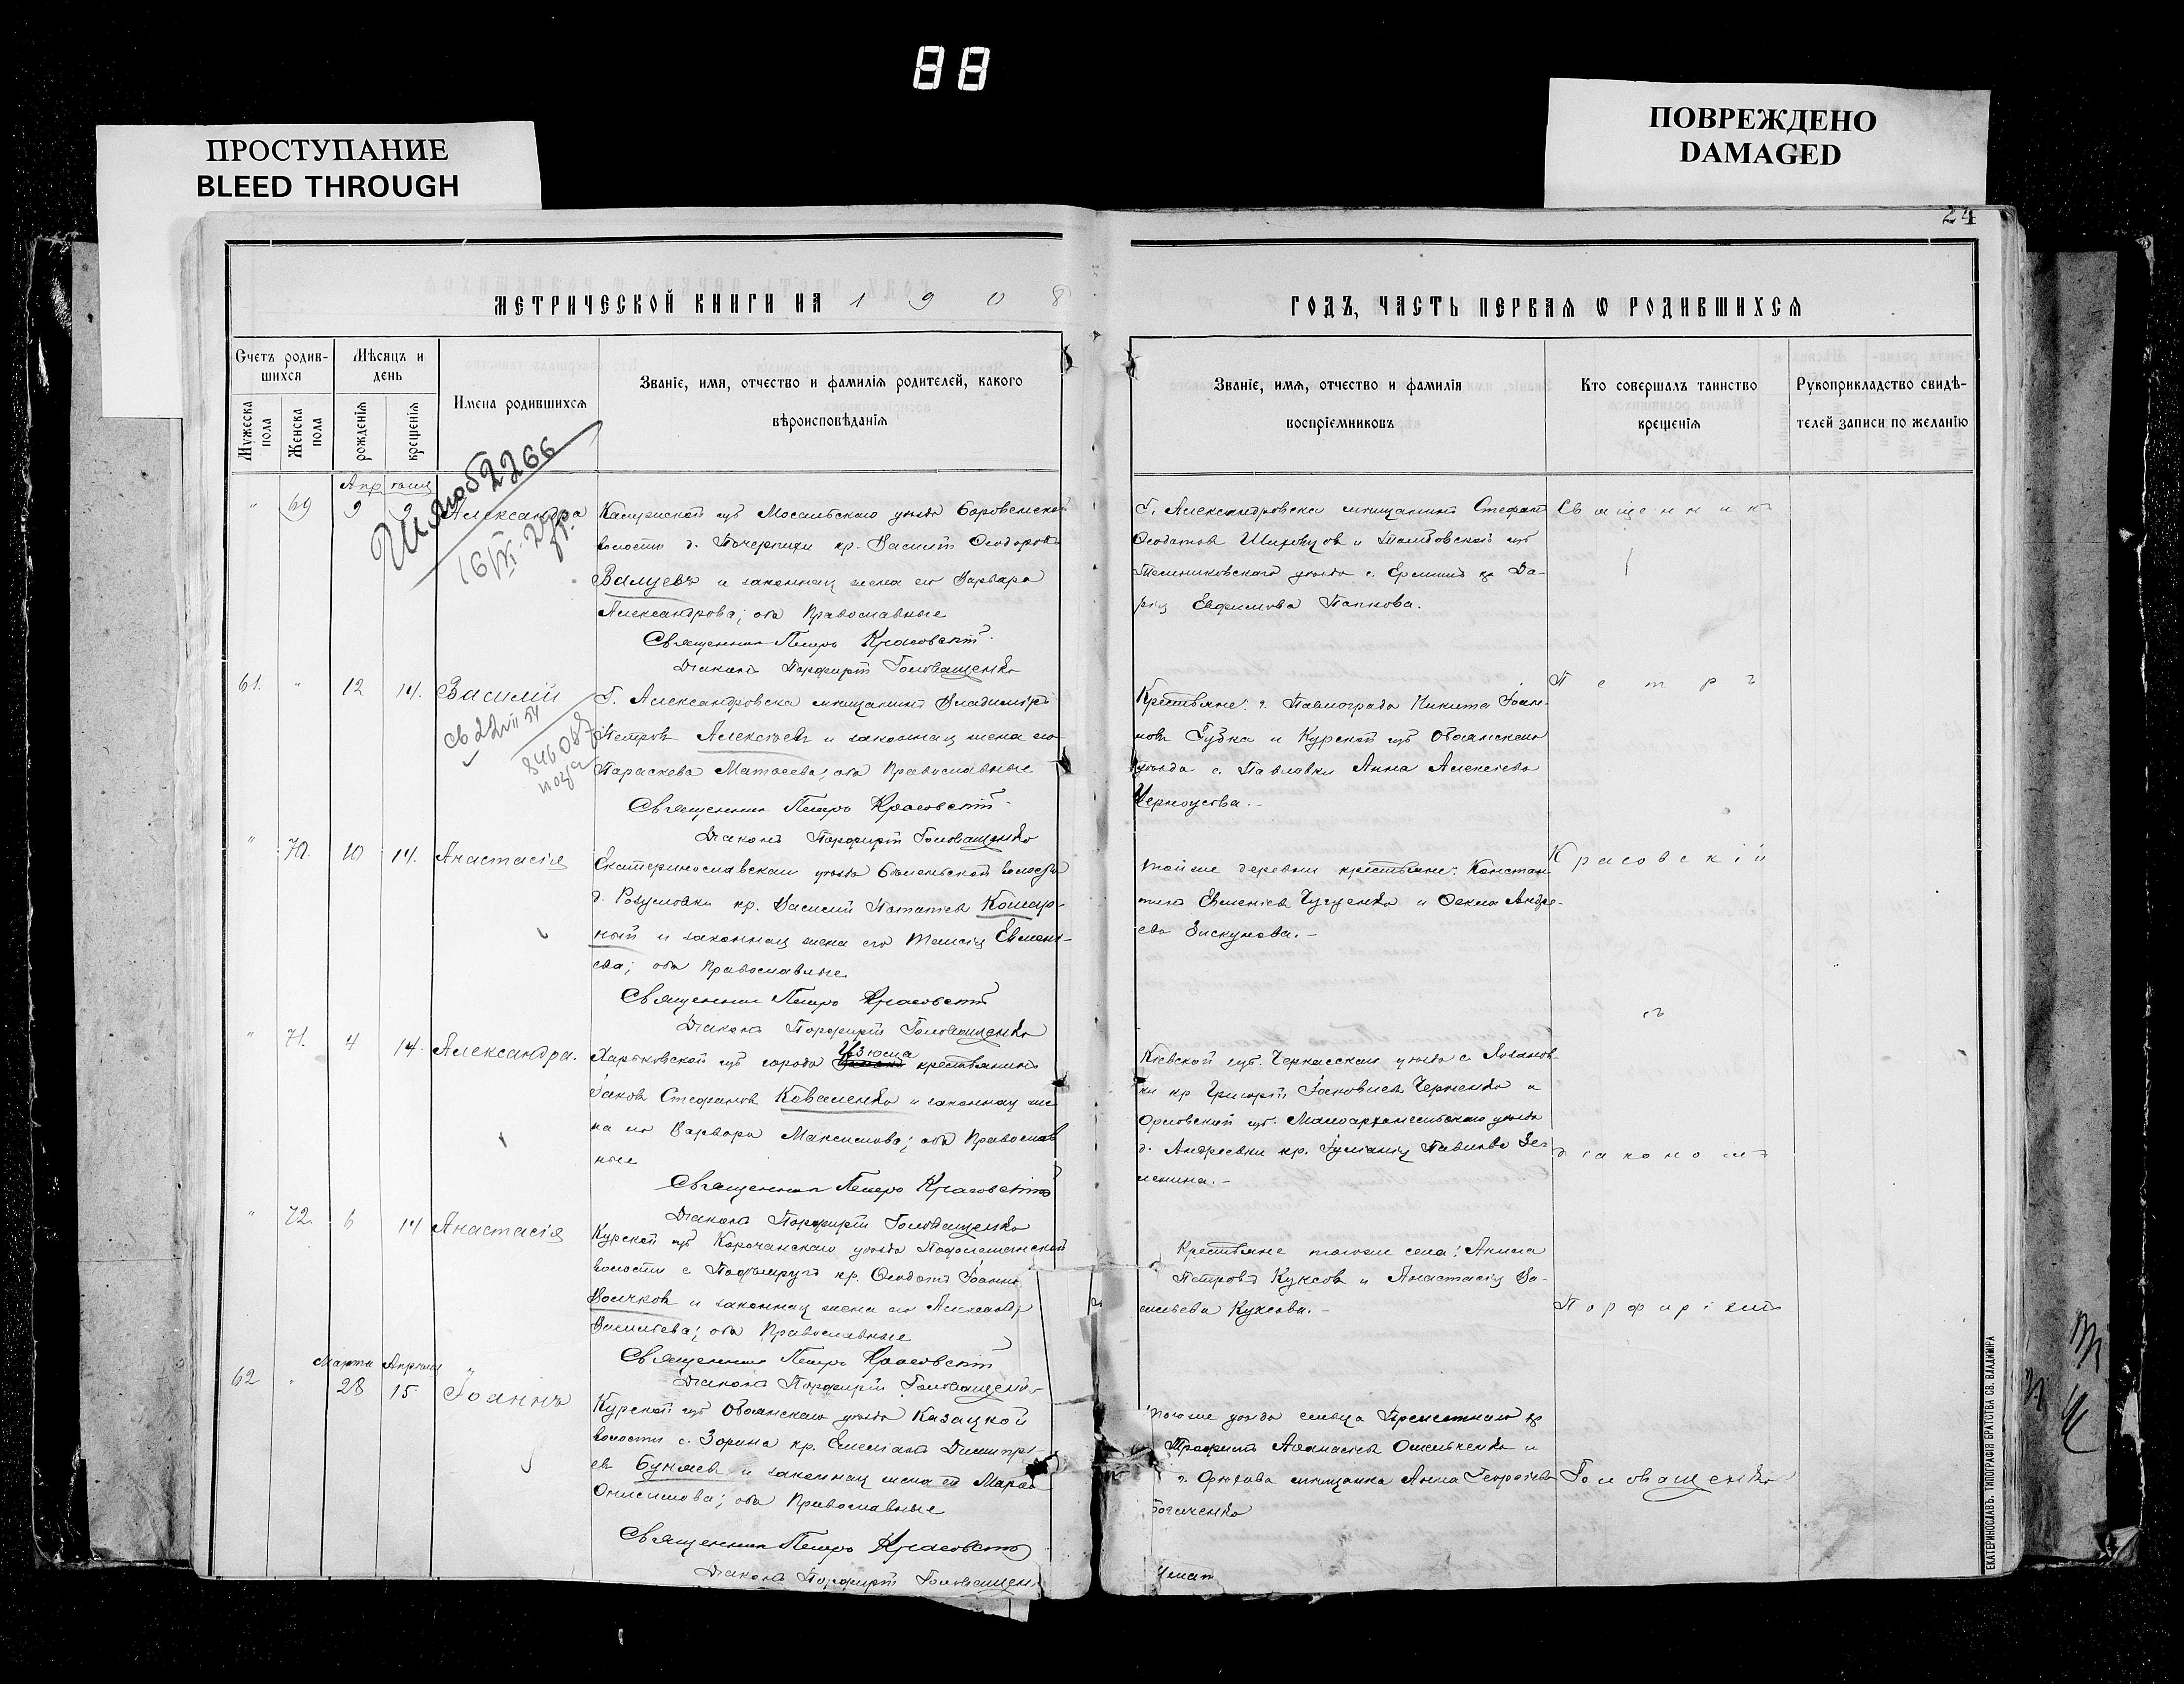 88
ПРОСТУПАНИЕ
BLEED THROUGH
ПОВРЕЖДЕНО
DAMAGED
24
МЕТРИЧЕСКОЙ КНИГИ НА 1908
ГОДЪ, ЧАСТЬ ПЕРВАЯ Ѡ РОДИВШИХСЯ
Счетъ родив-
шихся
Мужеска пола
Женска пола
Мѣсяцъ и
день
рожденія
крещенія
Имена родившихся
Званіе, имя, отчество и фамилія родителей, какого
вѣроисповѣданія
Званіе, имя, отчество и фамилія
воспріемниковъ
Кто совершалъ таинство
крещенія
Рукоприкладство свидѣ-
телей записи по желанію
" 69 9 9 Александра
2266
Калужской губ Мосальскаго уѣзда
волости д. кр. Василій Ѳеодоровъ
Валуевъ и законная жена его Варвара
Александрова; оба Православные
Священникъ Петръ Красовскій
Діаконъ Порфирій Головащенко
Г. Александровска мѣщанинъ Стефанъ
и Тамбовской губ
уѣзда с. кр Да-
рія Евфимова Папкова.
61. " 12 14. Василій
84608
Г. Александровска мѣщанинъ Владиміръ
Петровъ Алексѣевъ и законная жена его
Параскева Матѳеева; оба Православные
Священникъ Петръ Красовскій
Діаконъ Порфирій Головащенко
Крестьяне: г. Павлограда Никита Іоан-
новъ Губка и Курской губ Обоянскаго
уѣзда с. Павловки Анна Алексѣева
Черноусова. -
" 70. 10 14. Анастасія
Екатеринославскаго уѣзда волости
д. кр. Василій Комар-
ный и законная жена его Таисія Евмені-
ева; оба Православные
Священникъ Петръ Красовскій
Діаконъ Порфирій Головащенко
Той же деревни крестьяне: Констан-
тинъ Евменіевъ и Ѳекла Андре-
ева Пискунова. -
" 71. 4 14. Александра.
Изюма
Харьковской губ города крестьянинъ
Іаковъ Стефановъ Коваленко и законная же-
на его Варвара Максимова; оба Православ
ные
Священникъ Петръ Красовскій
Діаконъ Порфирій Головащенко
Кіевской губ. Черкасскаго уѣзда с.
ки кр Григорій Іаковлевъ Черненко и
Орловской губ. Малоархангельскаго уѣзда
д. Андреевки кр. Іуліанія Павлова Зе-
ленина. -
" 72. 6 14 Анастасія
Курской губ Корочанскаго уѣзда
волости с. кр. Ѳеодотъ Іоанно
Волчковъ и законная жена его Александр
Васильева; оба Православные
Священникъ Петръ Красовскій
Діаконъ Порфирій Головащенко
Крестьяне того же села: Акила
Петровъ Куксовъ и Анастасія Ва-
сильева Куксова. -
Марта Апрѣля
62 " 28 15 Іоаннъ
Курской губ Обоянскаго уѣзда Казацкой
волости с. Зорина кр. Емеліанъ Димитрі-
евъ Буняевъ и законная жена его Марѳа
Онисимова; оба Православные
Священникъ Петръ Красовскій
Діаконъ Порфирій Головащенк
того же уѣзда сельца кр
Трофимъ Аѳанасіевъ Омельченко и
г. Орѣхова мѣщанка Анна Георгіева
Богаченко
Священникъ
Петръ
Красовскій
съ
діакономъ
Порфиріемъ
Головащенко
ЕКАТЕРИНОСЛАВЪ. ТИПОГРАФІЯ БРАТСТВА СВ. ВЛАДИМІРА